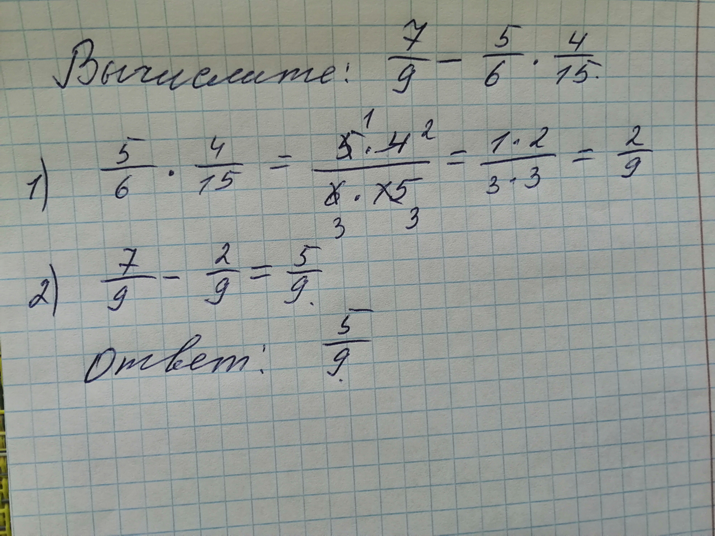 Вычислите: 7/9 - 5/6 · 4/15.
1) 5/6 · 4/15 = 5 1 · 4 2 / 6 3 · 15 3 = 1·2/3·3 = 2/9
2) 7/9 - 2/9 = 5/9.
Ответ: 5/9.